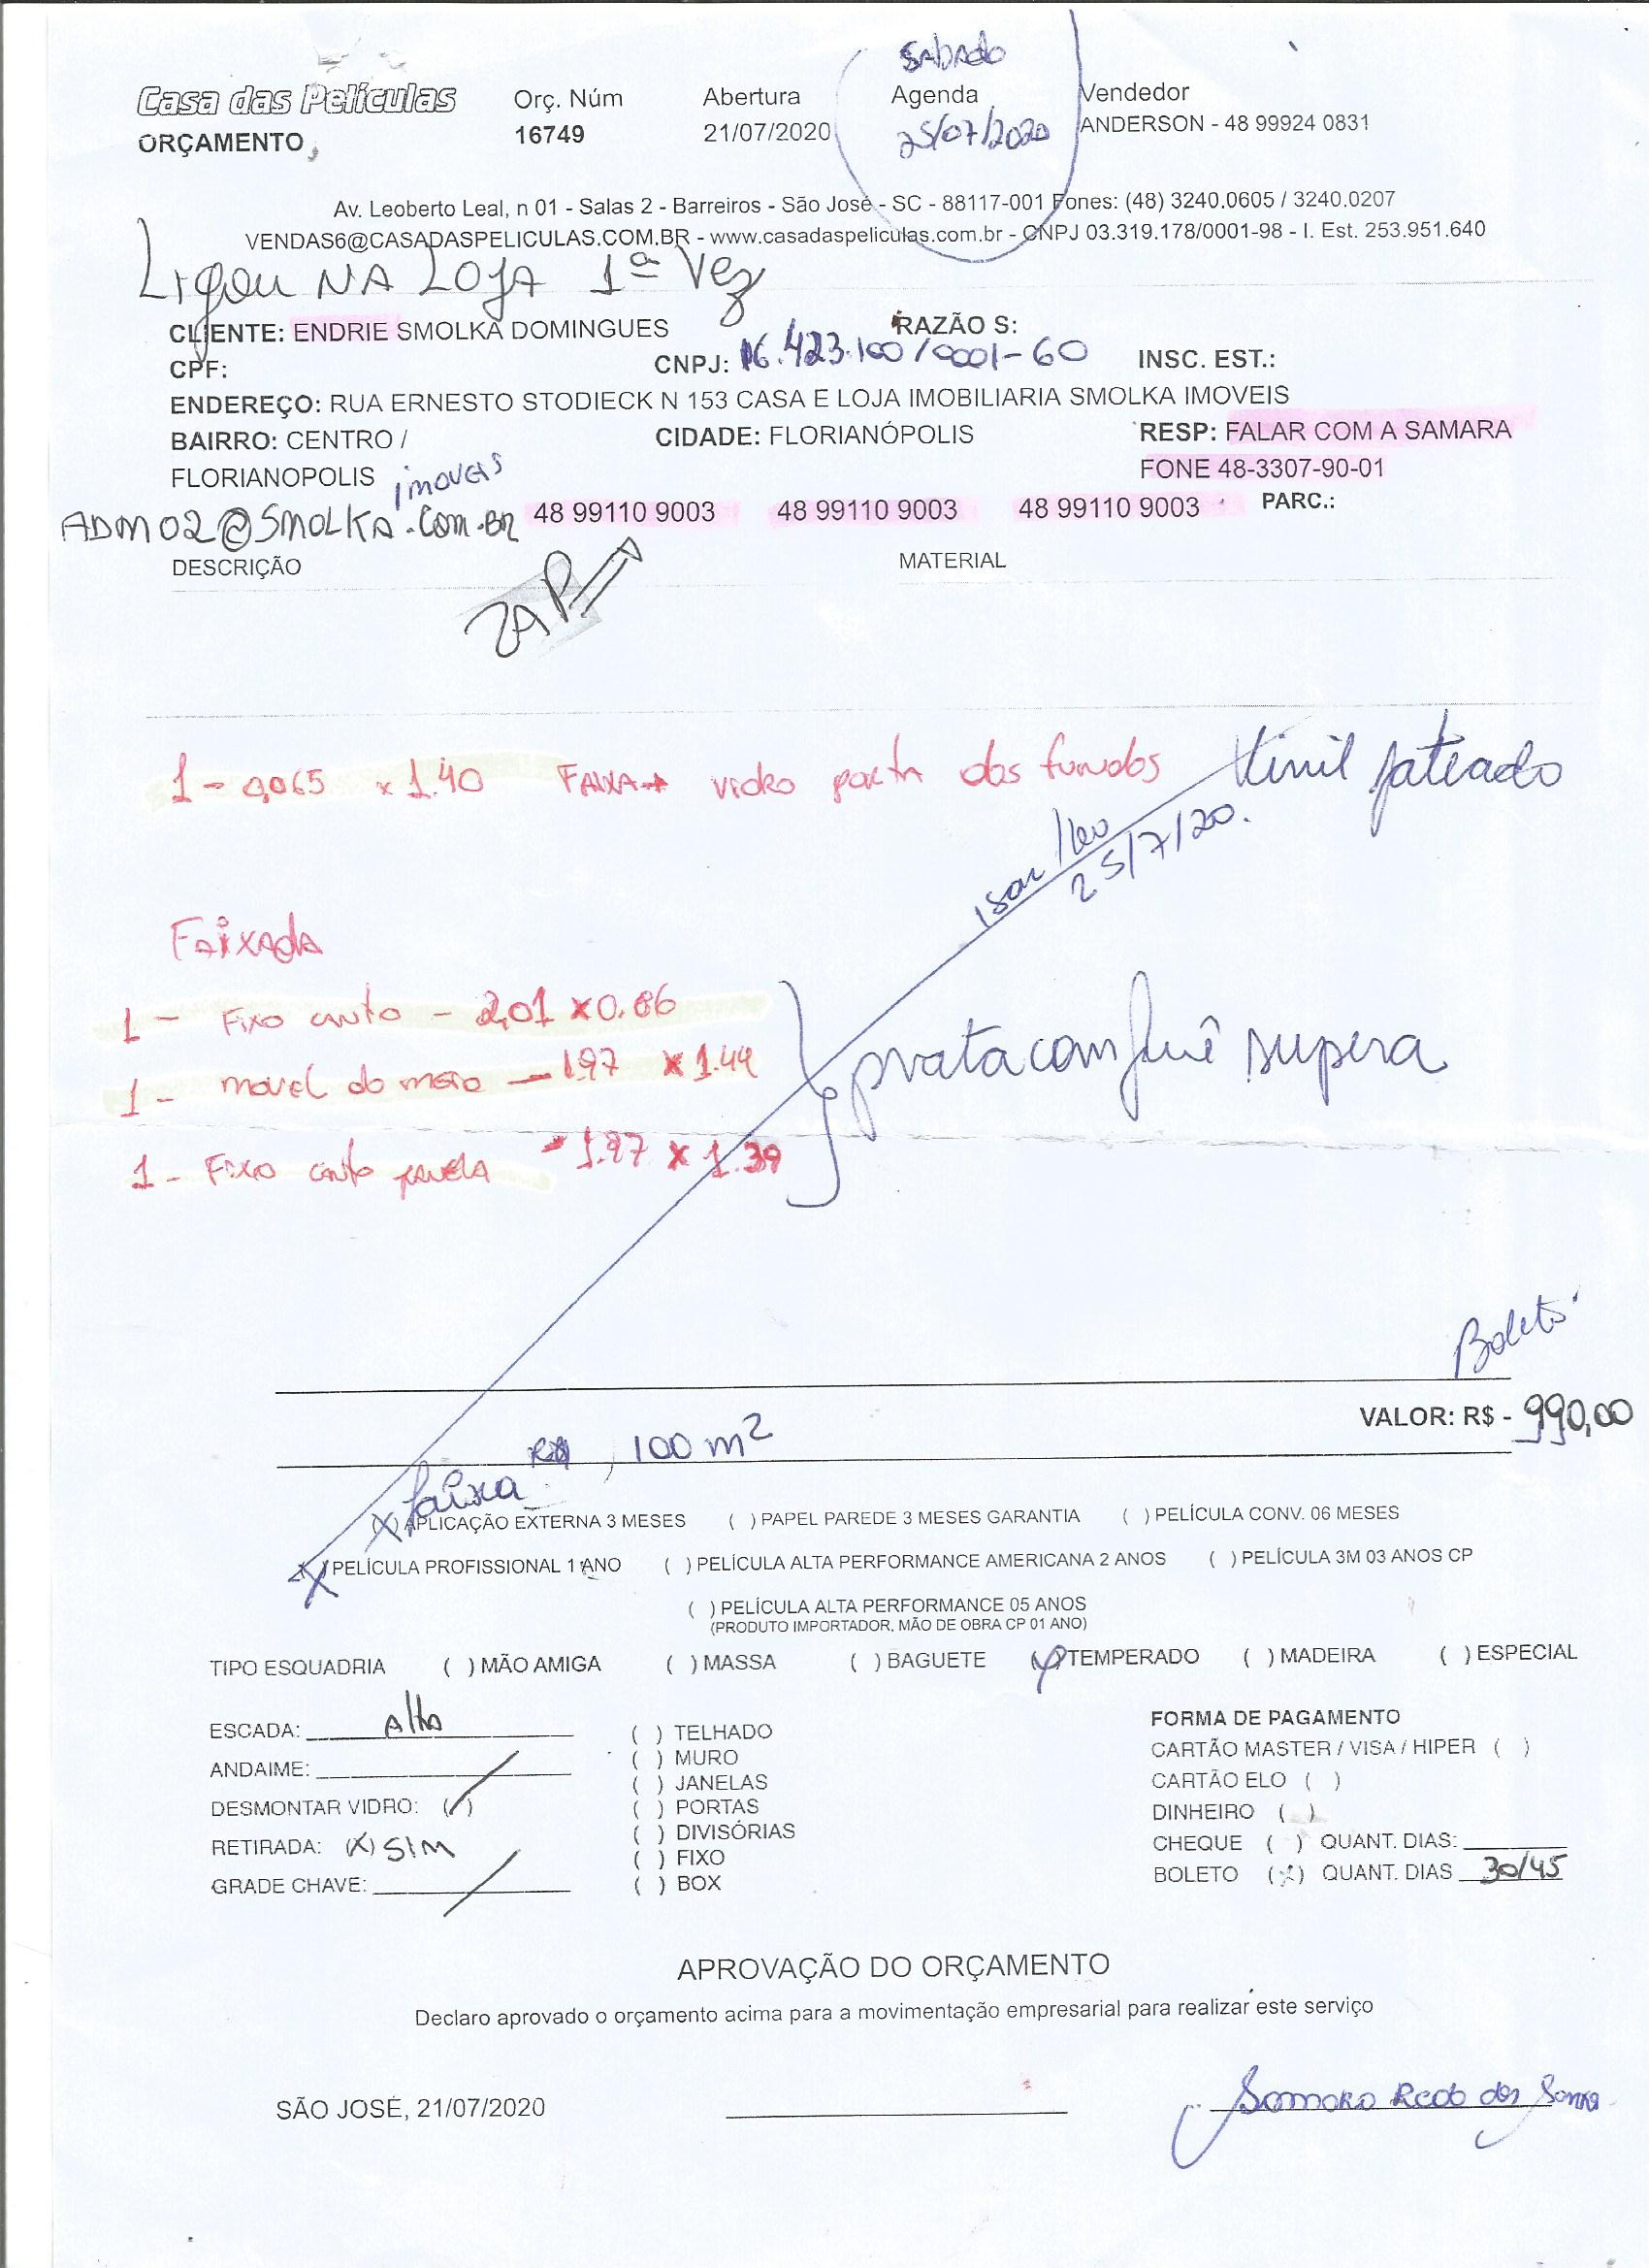 Sabado
Casa das Películas Orç. Núm Abertura Agenda Vendedor
ORÇAMENTO 16749 21/07/2020 25/07/2020 ANDERSON - 48 99924 0831
Av. Leoberto Leal, n 01 - Salas 2 - Barreiros - São José - SC - 88117-001 Fones: (48) 3240.0605 / 3240.0207
VENDAS6@CASADASPELICULAS.COM.BR - www.casadaspeliculas.com.br - CNPJ 03.319.178/0001-98 - I. Est. 253.951.640
Ligou NA LOJA 1ª Vez
CLIENTE: ENDRIE SMOLKA DOMINGUES RAZÃO S:
CPF: CNPJ: 16.423.100/0001-60 INSC. EST.:
ENDEREÇO: RUA ERNESTO STODIECK N 153 CASA E LOJA IMOBILIARIA SMOLKA IMOVEIS
BAIRRO: CENTRO / CIDADE: FLORIANÓPOLIS RESP: FALAR COM A SAMARA
FLORIANOPOLIS imoveis FONE 48-3307-90-01
ADM02@SMOLKA.com.BR 48 99110 9003 48 99110 9003 48 99110 9003 PARC.:
DESCRIÇÃO MATERIAL
ZAP
1 - 0,065 x 1.40 FAIXA → vidro porta dos fundos Vinil jateado
25/7/20.
Faixada
1 - Fixo canto - 2,01 x 0.86
1 - movel do meio - 1.97 x 1.44 prata com fumê supera
1 - Fixo canto janela - 1.97 x 1.39
Boleto
VALOR: R$ - 990,00
100 m²
faixa
(X) APLICAÇÃO EXTERNA 3 MESES ( ) PAPEL PAREDE 3 MESES GARANTIA ( ) PELÍCULA CONV. 06 MESES
(X) PELÍCULA PROFISSIONAL 1 ANO ( ) PELÍCULA ALTA PERFORMANCE AMERICANA 2 ANOS ( ) PELÍCULA 3M 03 ANOS CP
( ) PELÍCULA ALTA PERFORMANCE 05 ANOS
(PRODUTO IMPORTADOR, MÃO DE OBRA CP 01 ANO)
TIPO ESQUADRIA ( ) MÃO AMIGA ( ) MASSA ( ) BAGUETE (X) TEMPERADO ( ) MADEIRA ( ) ESPECIAL
ESCADA: Alta ( ) TELHADO FORMA DE PAGAMENTO
ANDAIME: ( ) MURO CARTÃO MASTER / VISA / HIPER ( )
DESMONTAR VIDRO: (/) ( ) JANELAS CARTÃO ELO ( )
( ) PORTAS DINHEIRO ( )
RETIRADA: (X) SIM ( ) DIVISÓRIAS CHEQUE ( ) QUANT. DIAS:
( ) FIXO BOLETO (X) QUANT. DIAS 30/45
GRADE CHAVE: ( ) BOX
APROVAÇÃO DO ORÇAMENTO
Declaro aprovado o orçamento acima para a movimentação empresarial para realizar este serviço
SÃO JOSÉ, 21/07/2020